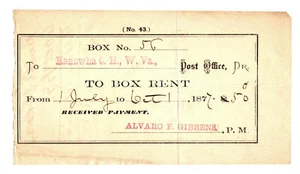 (No. 43.)
BOX No. 56
To Kanawha C. H., W. Va., Post Office, Dr.
TO BOX RENT
From 1 July to Oct 1 1877 $ 50
RECEIVED PAYMENT,
ALVARO F. GIBBENS, P. M.